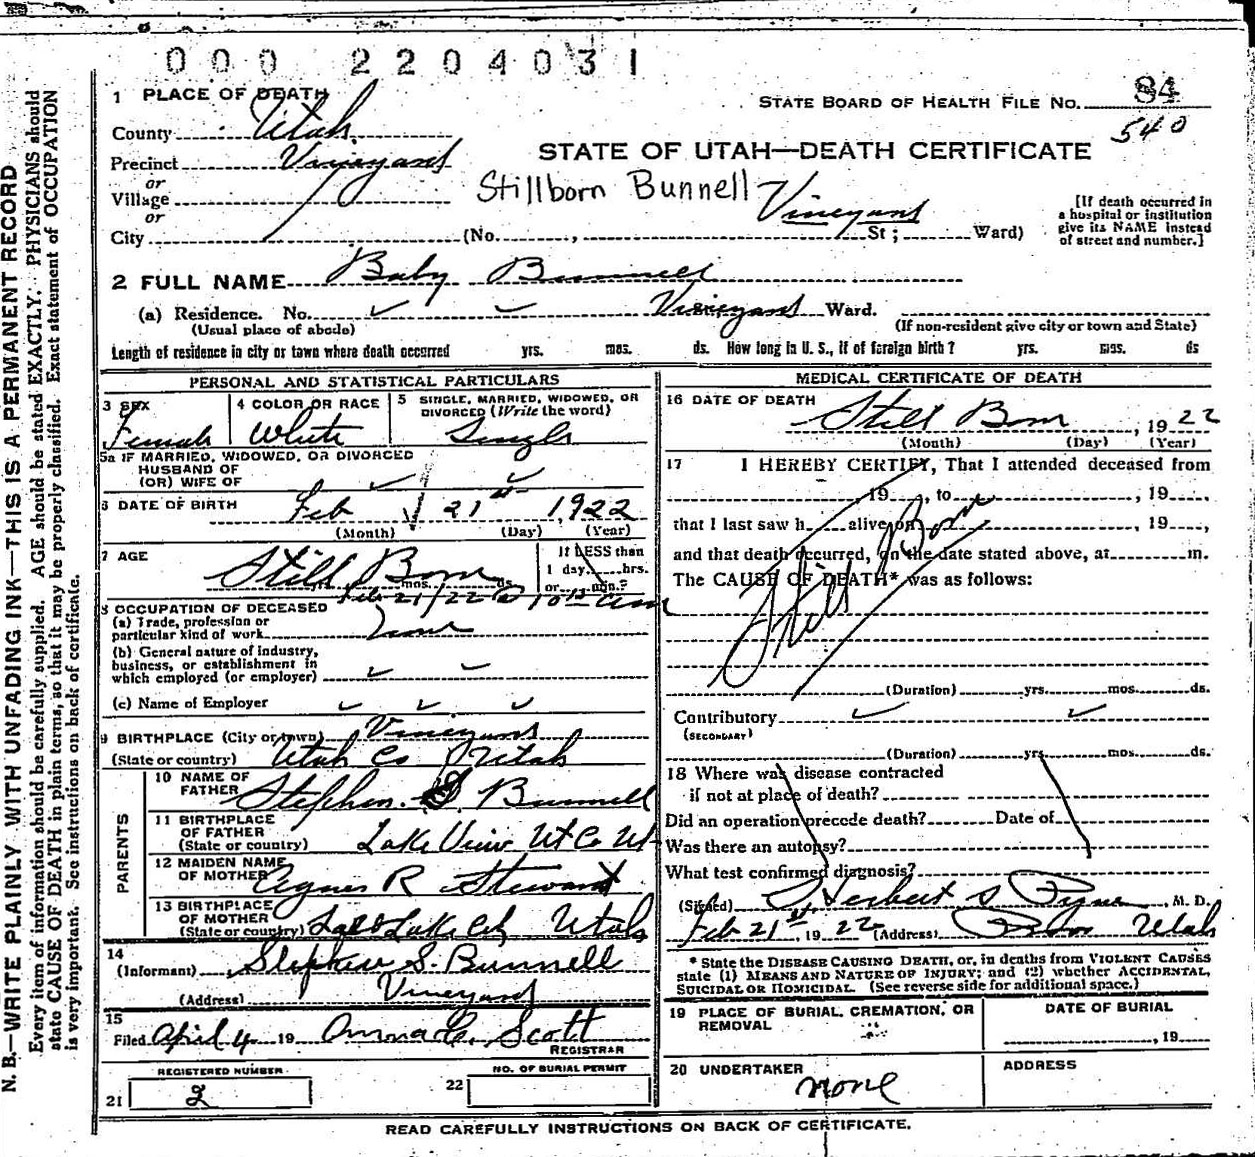 000 2204031
1 PLACE OF DEATH
STATE BOARD OF HEALTH FILE NO. 84
540
County Utah
STATE OF UTAH—DEATH CERTIFICATE
Precinct Vineyard
or
Village
Stillborn Bunnell
Vineyard
or
City (No. , St ; Ward)
[If death occurred in
a hospital or institution
give its NAME instead
of street and number.]
2 FULL NAME Baby Bunnell
(a) Residence. No. Vineyard Ward.
(Usual place of abode)
(If non-resident give city or town and State)
Length of residence in city or town where death occurred yrs. mos. ds. How long in U. S., if of foreign birth? yrs. mos. ds
PERSONAL AND STATISTICAL PARTICULARS
3 SEX
Female
4 COLOR OR RACE
White
5 SINGLE, MARRIED, WIDOWED, OR
DIVORCED (Write the word)
Single
5a IF MARRIED, WIDOWED, OR DIVORCED
HUSBAND OF
(OR) WIFE OF
6 DATE OF BIRTH Feb 21st 1922
(Month) (Day) (Year)
7 AGE
Still Born
mos. ds.
If LESS than
1 day, hrs.
or min.?
Feb 21/22 @ 10 am
8 OCCUPATION OF DECEASED
(a) Trade, profession or
particular kind of work none
(b) General nature of industry,
business, or establishment in
which employed (or employer)
(c) Name of Employer
9 BIRTHPLACE (City or town) Vineyard
(State or country) Utah Co Utah
PARENTS
10 NAME OF
FATHER Stephen S. Bunnell
11 BIRTHPLACE
OF FATHER
(State or country) Lake View Ut Co Ut
12 MAIDEN NAME
OF MOTHER Agnes R Stewart
13 BIRTHPLACE
OF MOTHER
(State or country) Salt Lake City Utah
14
(Informant) Stephen S. Bunnell
(Address) Vineyard
15
Filed April 4 19 Anna C. Scott
REGISTRAR
REGISTERED NUMBER
21 2
NO. OF BURIAL PERMIT
22
MEDICAL CERTIFICATE OF DEATH
16 DATE OF DEATH
Still Born , 1922
(Month) (Day) (Year)
17 I HEREBY CERTIFY, That I attended deceased from
19 , to , 19 ,
that I last saw h alive on , 19 ,
and that death occurred, on the date stated above, at m.
The CAUSE OF DEATH* was as follows:
Still Born
(Duration) yrs. mos. ds.
Contributory
(SECONDARY)
(Duration) yrs. mos. ds.
18 Where was disease contracted
if not at place of death?
Did an operation precede death? Date of
Was there an autopsy?
What test confirmed diagnosis?
(Signed) Herbert S Pyne, M. D.
Feb 21st, 1922 (Address) Provo Utah
* State the DISEASE CAUSING DEATH, or, in deaths from VIOLENT CAUSES
state (1) MEANS AND NATURE OF INJURY; and (2) whether ACCIDENTAL,
SUICIDAL OR HOMICIDAL. (See reverse side for additional space.)
19 PLACE OF BURIAL, CREMATION, OR
REMOVAL
DATE OF BURIAL
, 19
20 UNDERTAKER
none
ADDRESS
READ CAREFULLY INSTRUCTIONS ON BACK OF CERTIFICATE.
N. B.—WRITE PLAINLY WITH UNFADING INK—THIS IS A PERMANENT RECORD
Every item of information should be carefully supplied. AGE should be stated EXACTLY. PHYSICIANS should
state CAUSE OF DEATH in plain terms, so that it may be properly classified. Exact statement of OCCUPATION
is very important. See instructions on back of certificate.